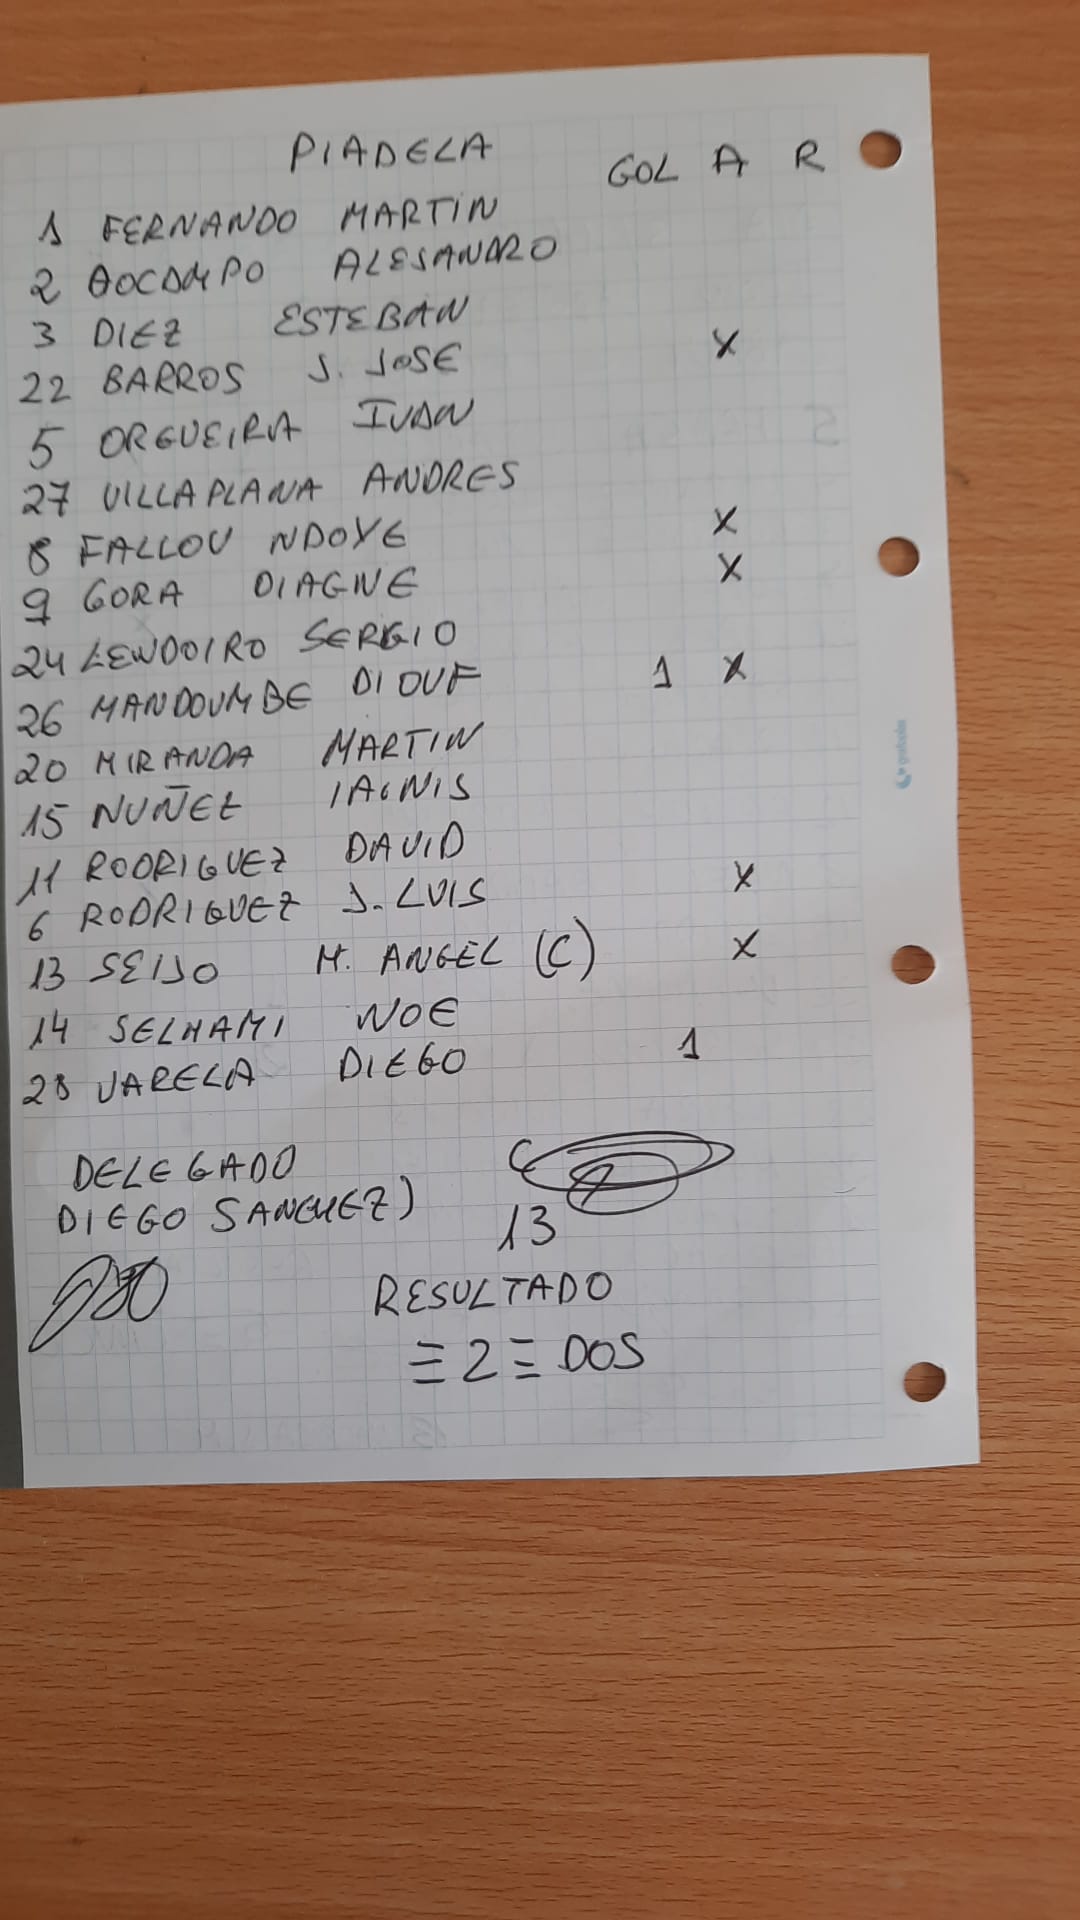 PIADELA
GOL A R
1 FERNANDO MARTIN
2 OCAMPO ALESANDRO
3 DIEZ ESTEBAN
22 BARROS J. JOSE X
5 ORGUEIRA IVAN
27 VILLAPLANA ANDRES
8 FALLOU NDOYE X
9 GORA DIAGNE X
24 LENDOIRO SERGIO
26 MANDOUMBE DIOUF 1 X
20 MIRANDA MARTIN
15 NUÑEZ
11 RODRIGUEZ DAVID
6 RODRIGUEZ J. LUIS X
13 SEIJO M. ANGEL (C) X
14 SELHAMI NOE
28 VARELA DIEGO 1
DELEGADO
DIEGO SANCHEZ)
13
RESULTADO
≡ 2 ≡ DOS